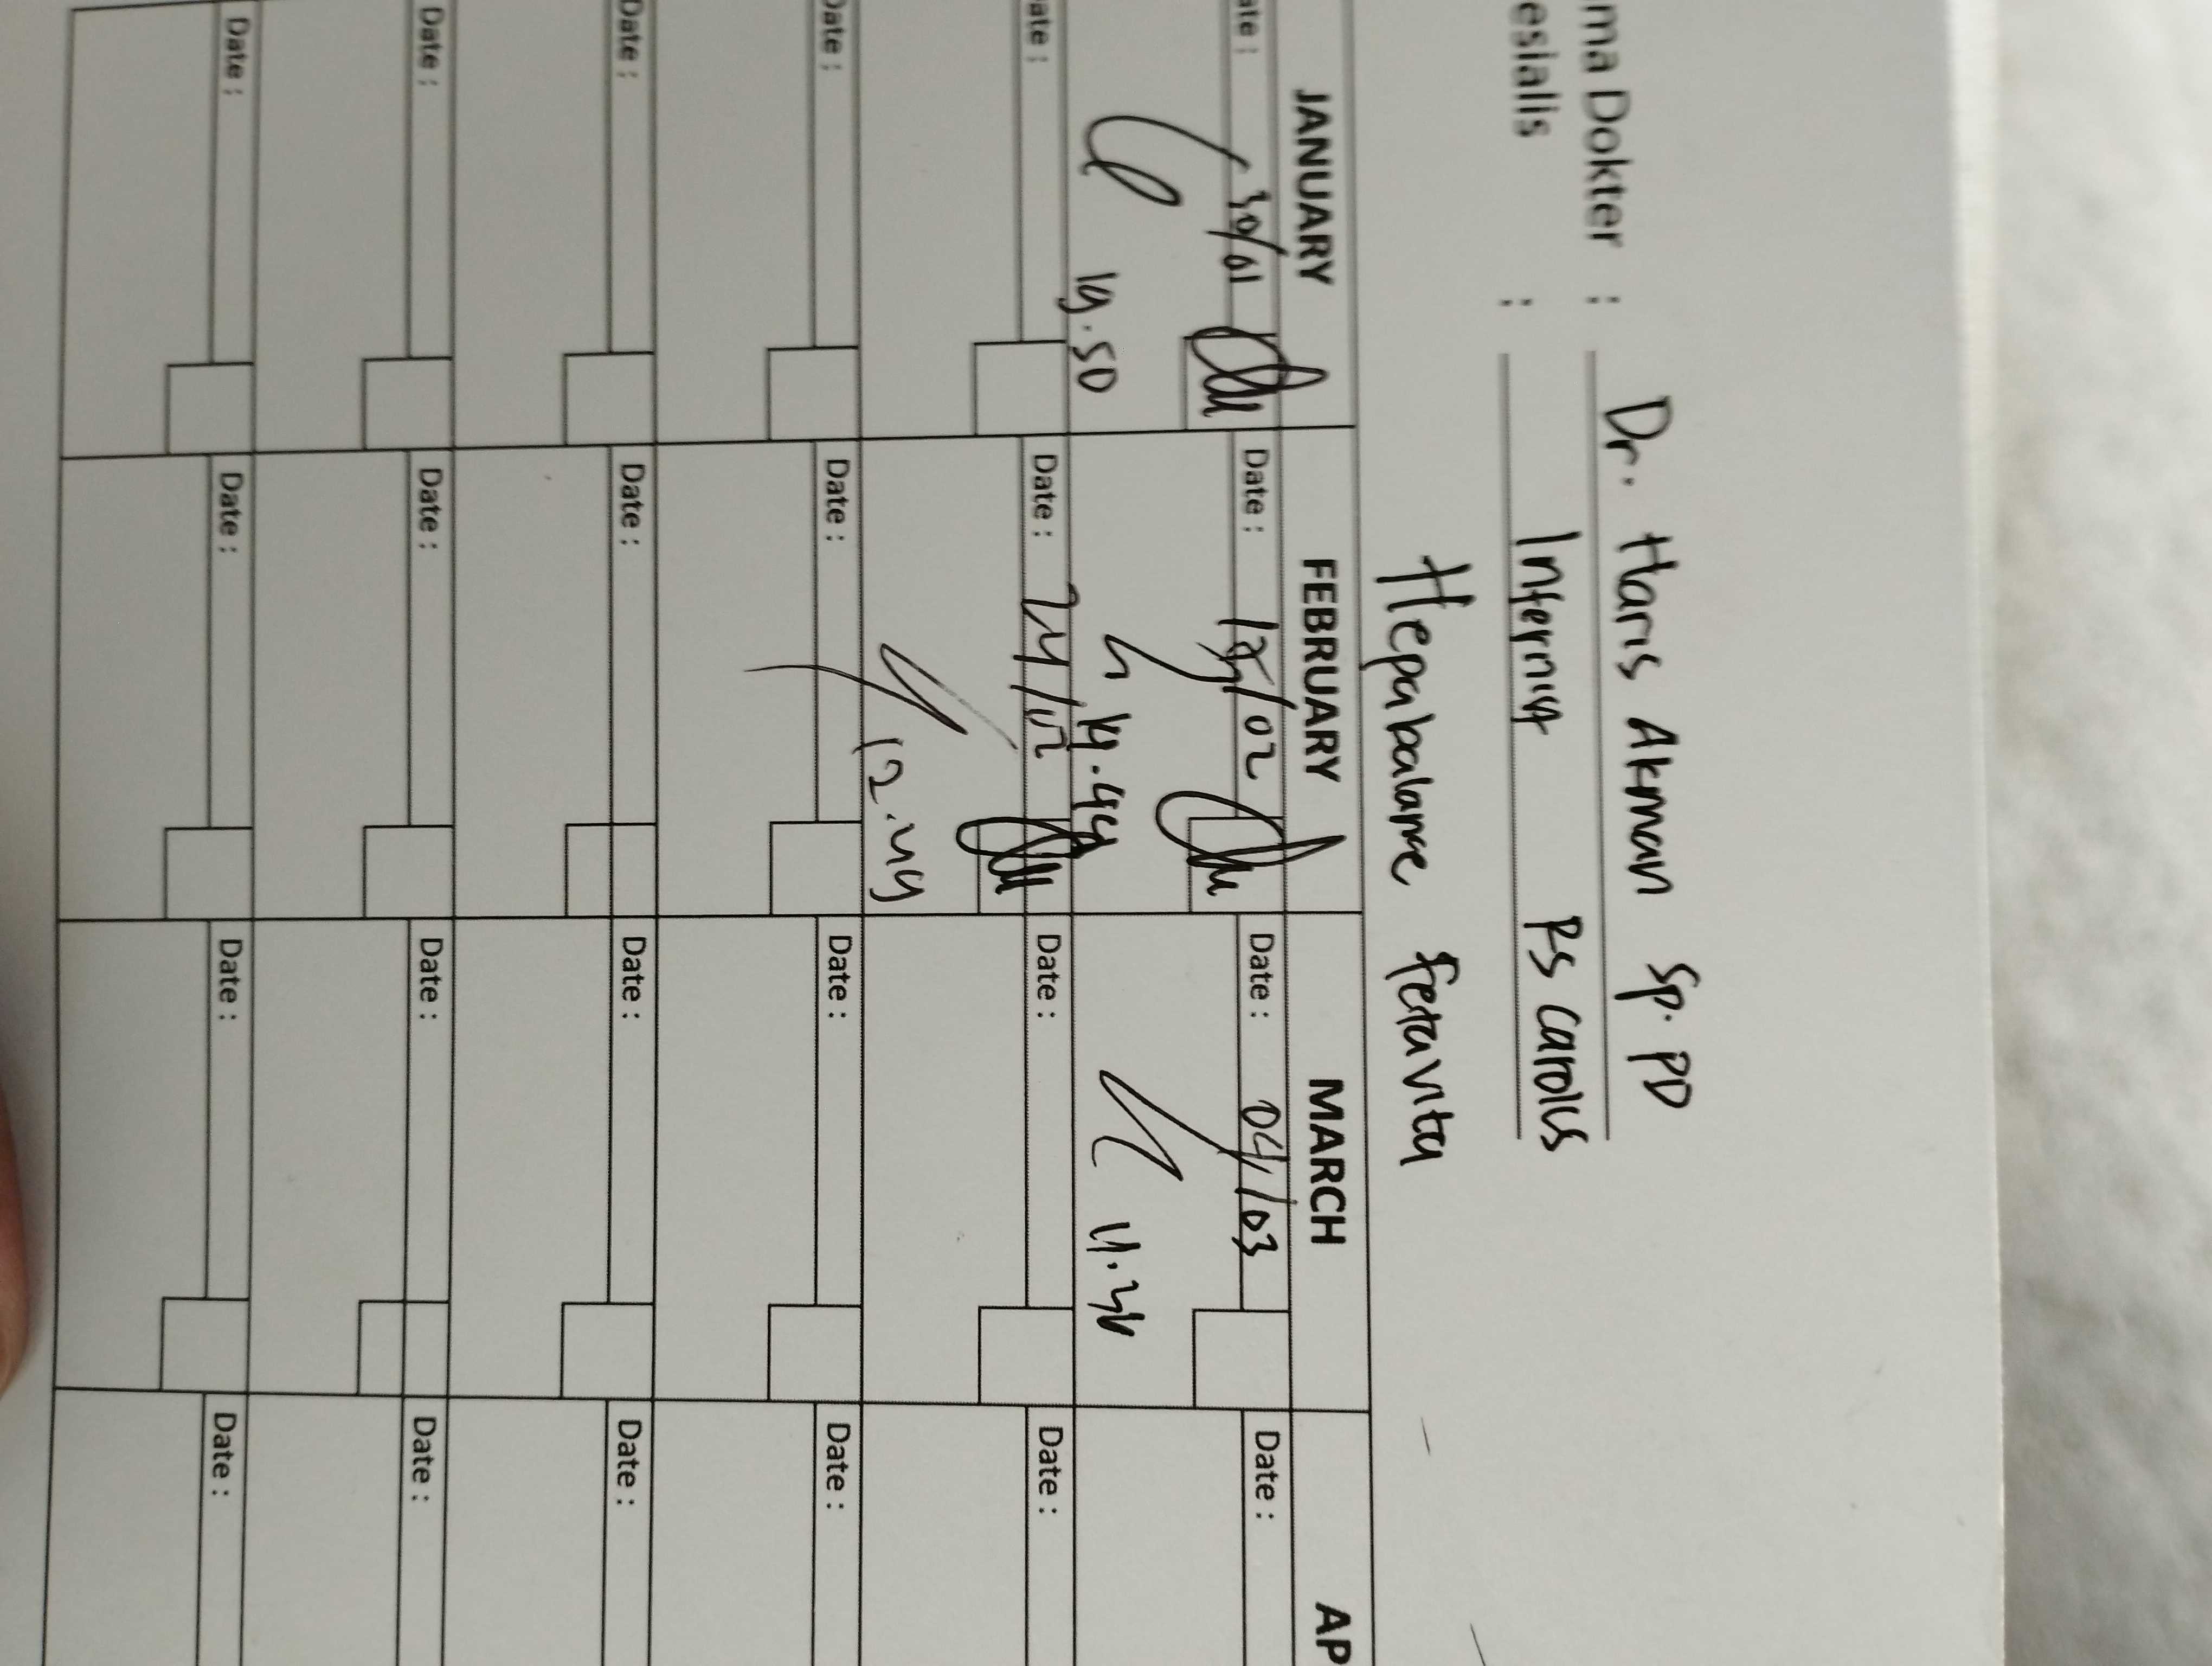 ma Dokter : Dr. Haris Akman Sp.PD
esialis : Internist RS Carolus
Hepabalance Fetavita
JANUARY FEBRUARY MARCH AP
ate : 30/01 Date : /02 Date : 04/03 Date :
19.50 19.44 11.36
ate : Date : 24/02 Date : Date :
12.49
Date : Date : Date : Date :
Date : Date : Date : Date :
Date : Date : Date : Date :
Date : Date : Date : Date :